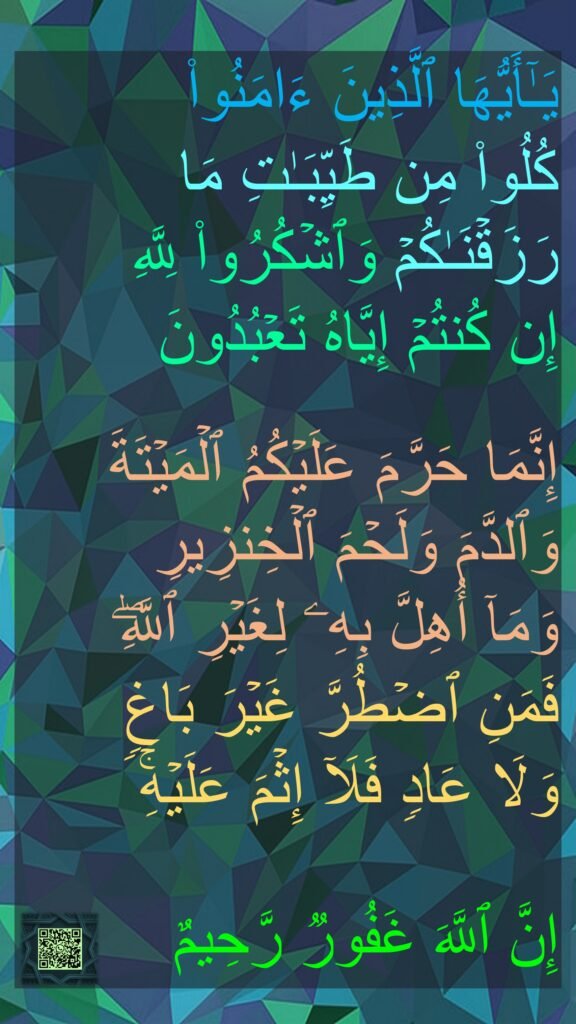 يَـٰٓأَيُّهَا ٱلَّذِينَ ءَامَنُوا۟
كُلُوا۟ مِن طَيِّبَـٰتِ مَا
رَزَقْنَـٰكُمْ وَٱشْكُرُوا۟ لِلَّهِ
إِن كُنتُمْ إِيَّاهُ تَعْبُدُونَ
إِنَّمَا حَرَّمَ عَلَيْكُمُ ٱلْمَيْتَةَ
وَٱلدَّمَ وَلَحْمَ ٱلْخِنزِيرِ
وَمَآ أُهِلَّ بِهِۦ لِغَيْرِ ٱللَّهِ ۖ
فَمَنِ ٱضْطُرَّ غَيْرَ بَاغٍۢ
وَلَا عَادٍۢ فَلَآ إِثْمَ عَلَيْهِ ۚ
إِنَّ ٱللَّهَ غَفُورٌۭ رَّحِيمٌ